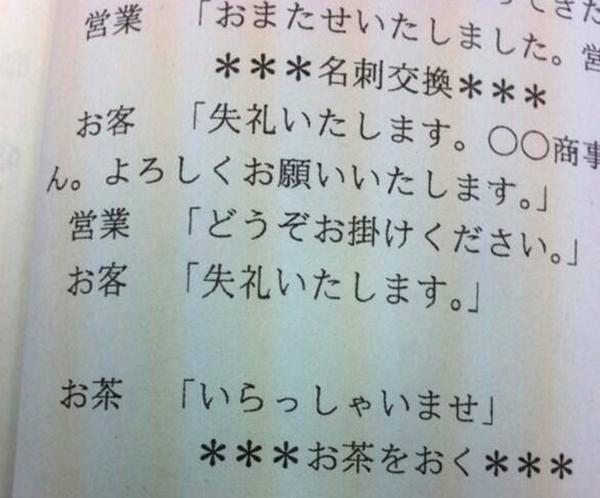 てきた
営業 「おまたせいたしました。営
＊＊＊名刺交換＊＊＊
お客 「失礼いたします。〇〇商事
ん。よろしくお願いいたします。」
営業 「どうぞお掛けください。」
お客 「失礼いたします。」
お茶 「いらっしゃいませ」
＊＊＊お茶をおく＊＊＊